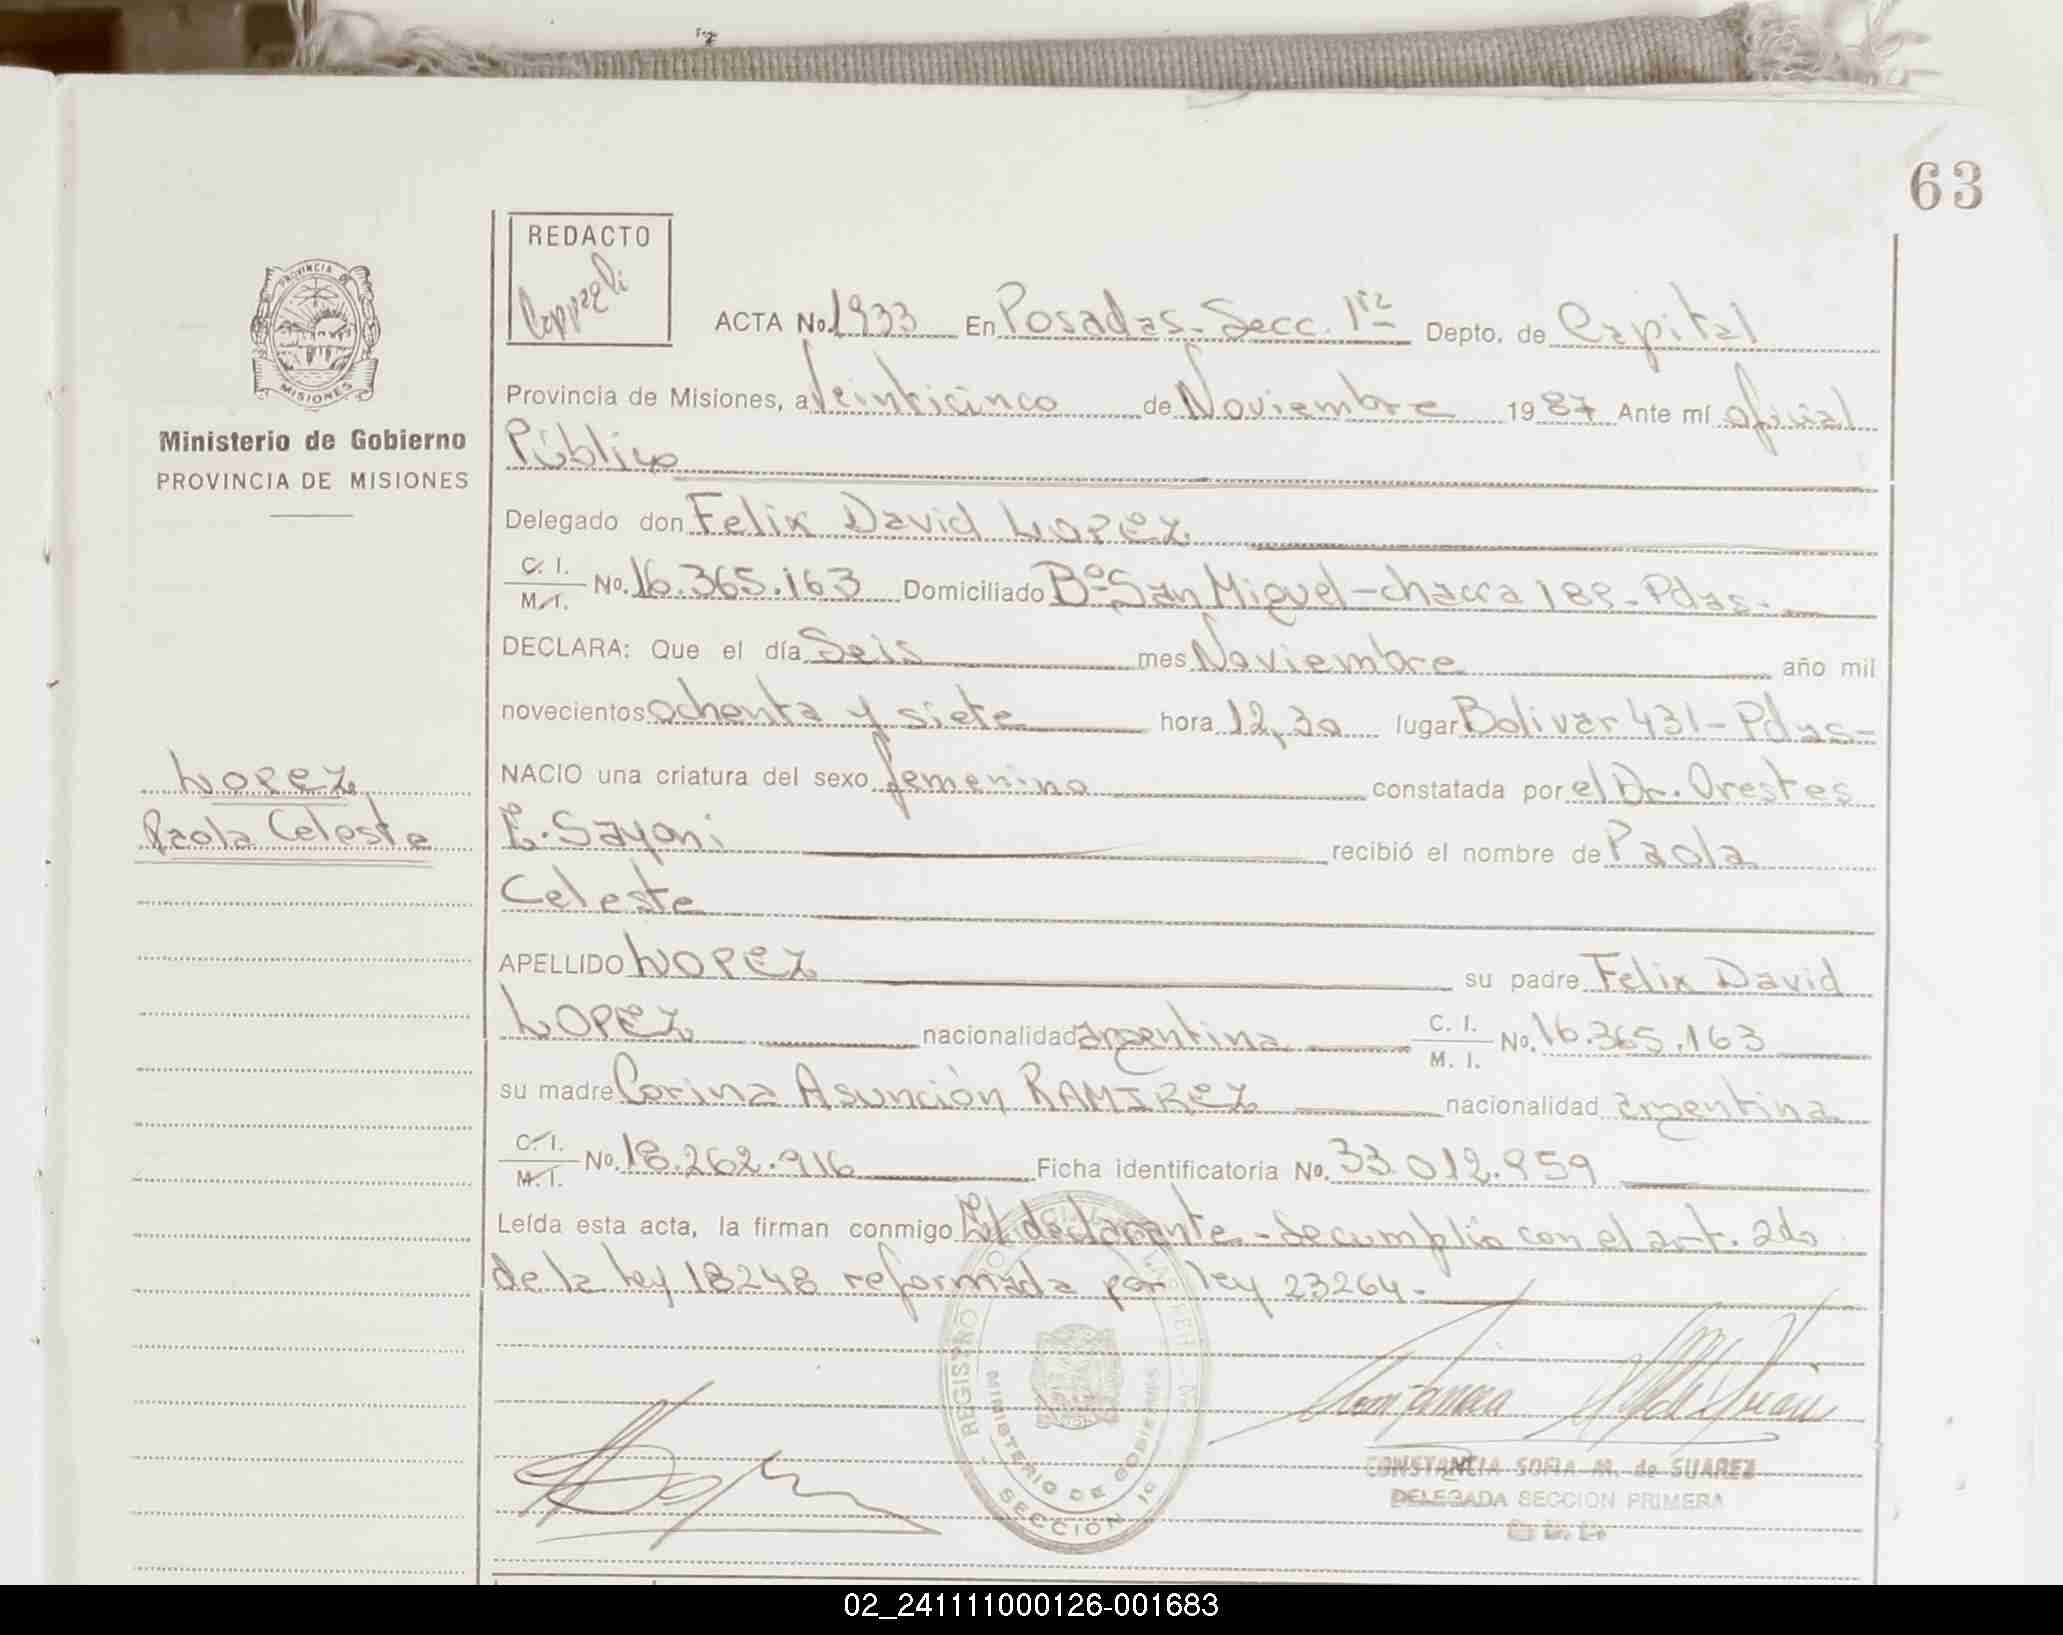 63
REDACTO
PROVINCIA
MISIONES
ACTA No. 1933 En Posadas - Secc. 1ra Depto. de Capital
Provincia de Misiones, a Veinticinco de Noviembre 1987 Ante mí oficial
Público
Ministerio de Gobierno
PROVINCIA DE MISIONES
Delegado don Felix David LOPEZ
C. I. M. I. No. 16.365.163 Domiciliado Bº San Miguel - chacra 188 - Pdas.-
DECLARA: Que el día Seis mes Noviembre año mil
novecientos ochenta y siete hora 12,30 lugar Bolivar 431 - Pdas -
NACIO una criatura del sexo femenino constatada por el Dr. Orestes
E. Sayoni recibió el nombre de Paola
Celeste
LOPEZ
Paola Celeste
APELLIDO LOPEZ su padre Felix David
LOPEZ nacionalidad argentina C. I. M. I. No. 16.365.163
su madre Corina Asunción RAMIREZ nacionalidad argentina
C. I. M. I. No. 18.262.916 Ficha identificatoria No. 33.012.959
Leída esta acta, la firman conmigo El declarante - Se cumplió con el art. 2do
de la ley 18248 reformada por ley 23264.
REGISTRO
MINISTERIO DE GOBIERNO
SECCION 1º
CONSTANCIA SOFIA M. de SUAREZ
DELEGADA SECCION PRIMERA
02_241111000126-001683